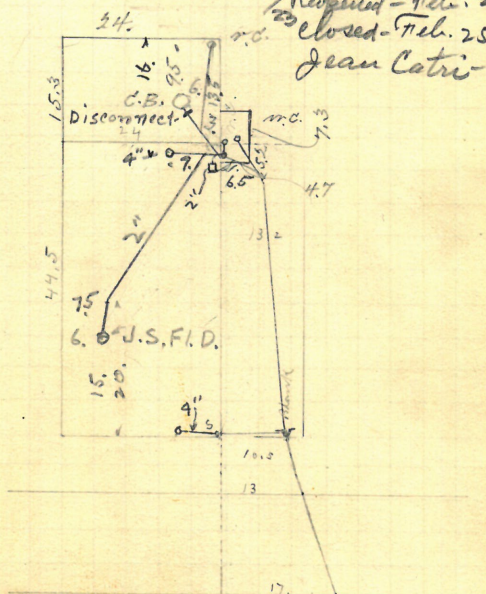 Reopened - Feb.
23 Closed - Feb. 25
Jean Catri-
24.
w.c.
16.
9.5
15.3
6.
13.5
C.B.
Disconnect
24
w.c.
7.3
4"
9.
5.5
6.5
2"
4.7
2"
13 2
44.5
7.5
6. J.S. Fl. D.
15.
20.
4"
5
10.5
13
17.